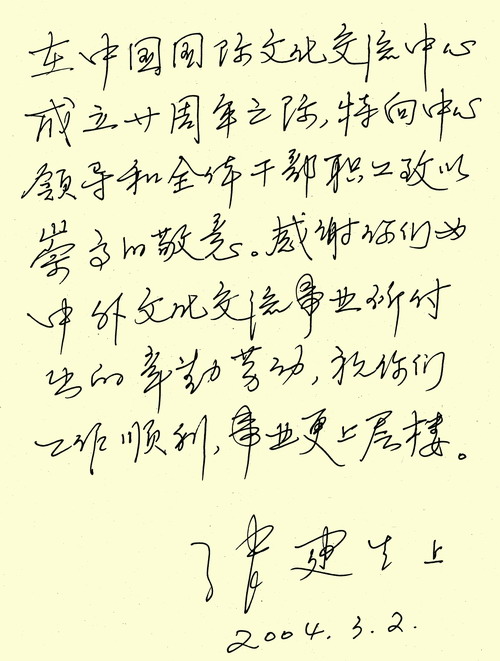 在中国国际文化交流中心
成立廿周年之际,特向中心
领导和全体干部职工致以
崇高的敬意。感谢你们为
中外文化交流事业所付
出的辛勤劳动,祝你们
工作顺利,事业更上层楼。
建生上
2004.3.2.